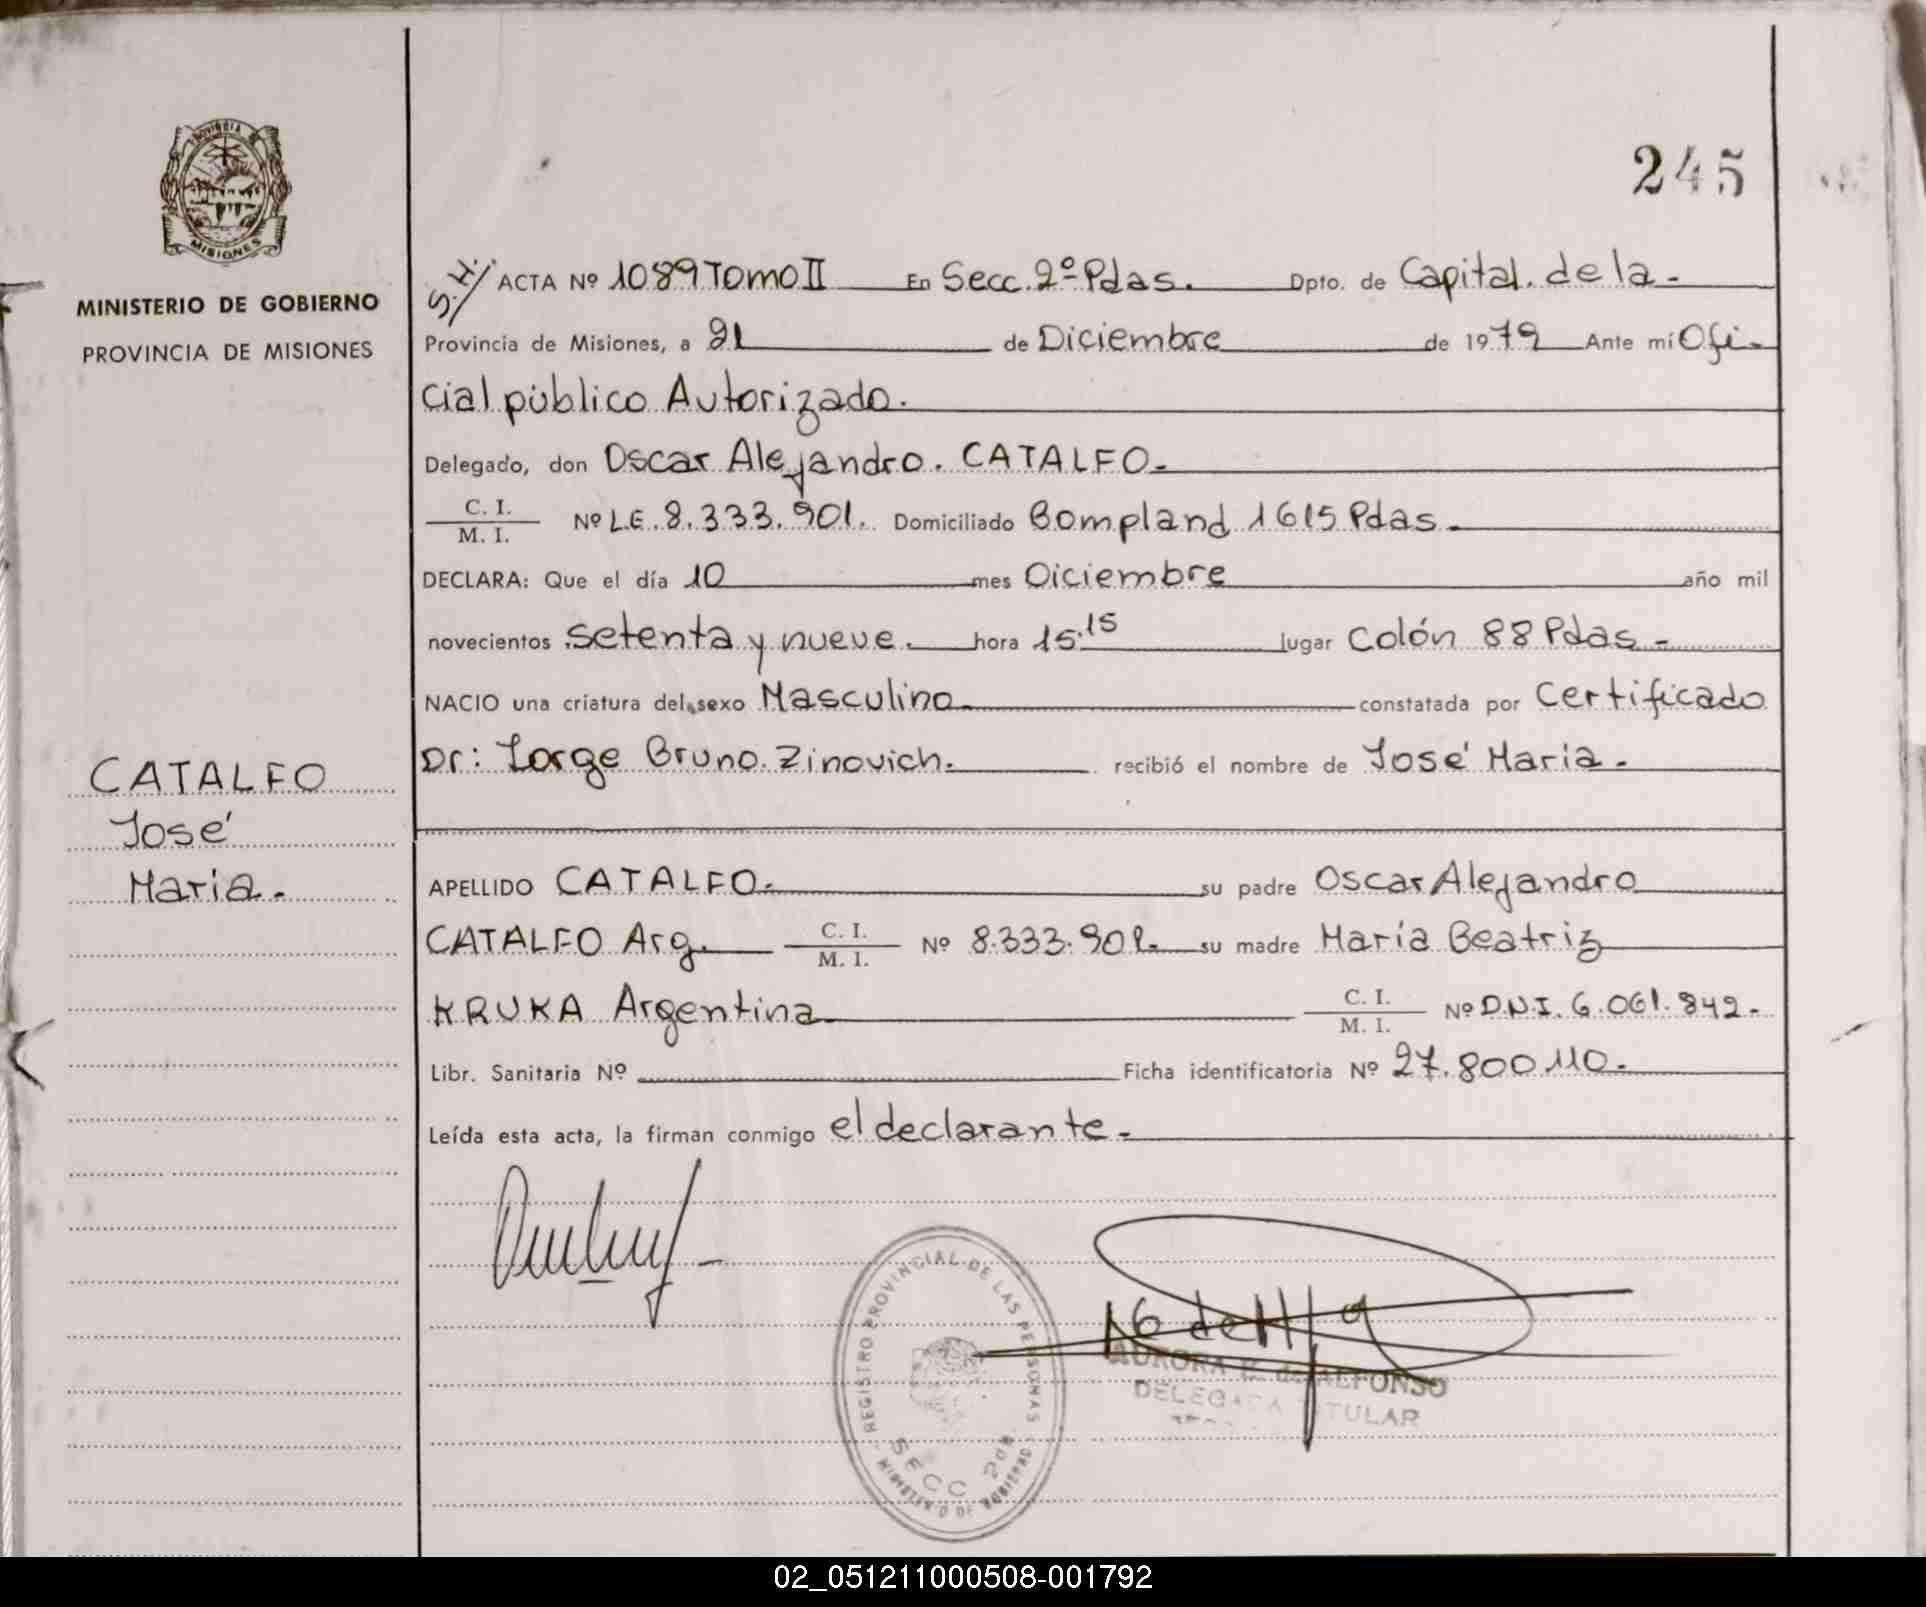 245
PROVINCIA DE
MISIONES
MINISTERIO DE GOBIERNO
PROVINCIA DE MISIONES
CATALFO
José
Maria.
S.H./ ACTA Nº 1089 Tomo II En Secc. 2º Pdas. Dpto. de Capital. de la
Provincia de Misiones, a 21 de Diciembre de 1979 Ante mí Ofi-
cial público Autorizado.
Delegado, don Oscar Alejandro. CATALFO.
C. I.
M. I. Nº L.E. 8.333.901. Domiciliado Bompland 1615 Pdas.
DECLARA: Que el día 10 mes Diciembre año mil
novecientos setenta y nueve. hora 15.15 lugar Colón 88 Pdas.
NACIO una criatura del sexo Masculino. constatada por Certificado
Dr: Jorge Bruno. Zinovich. recibió el nombre de José Maria.
APELLIDO CATALFO. su padre Oscar Alejandro
CATALFO Arg. C. I. M. I. Nº 8.333.901. su madre María Beatriz
KRUKA Argentina C. I. M. I. Nº D.N.I. 6.061.842.
Libr. Sanitaria Nº Ficha identificatoria Nº 27.800.110.
Leída esta acta, la firman conmigo el declarante.
REGISTRO PROVINCIAL DE LAS PERSONAS
SECC 2da
MINISTERIO DE GOBIERNO
AURORA de ALFONSO
DELEGADA TITULAR
02_051211000508-001792